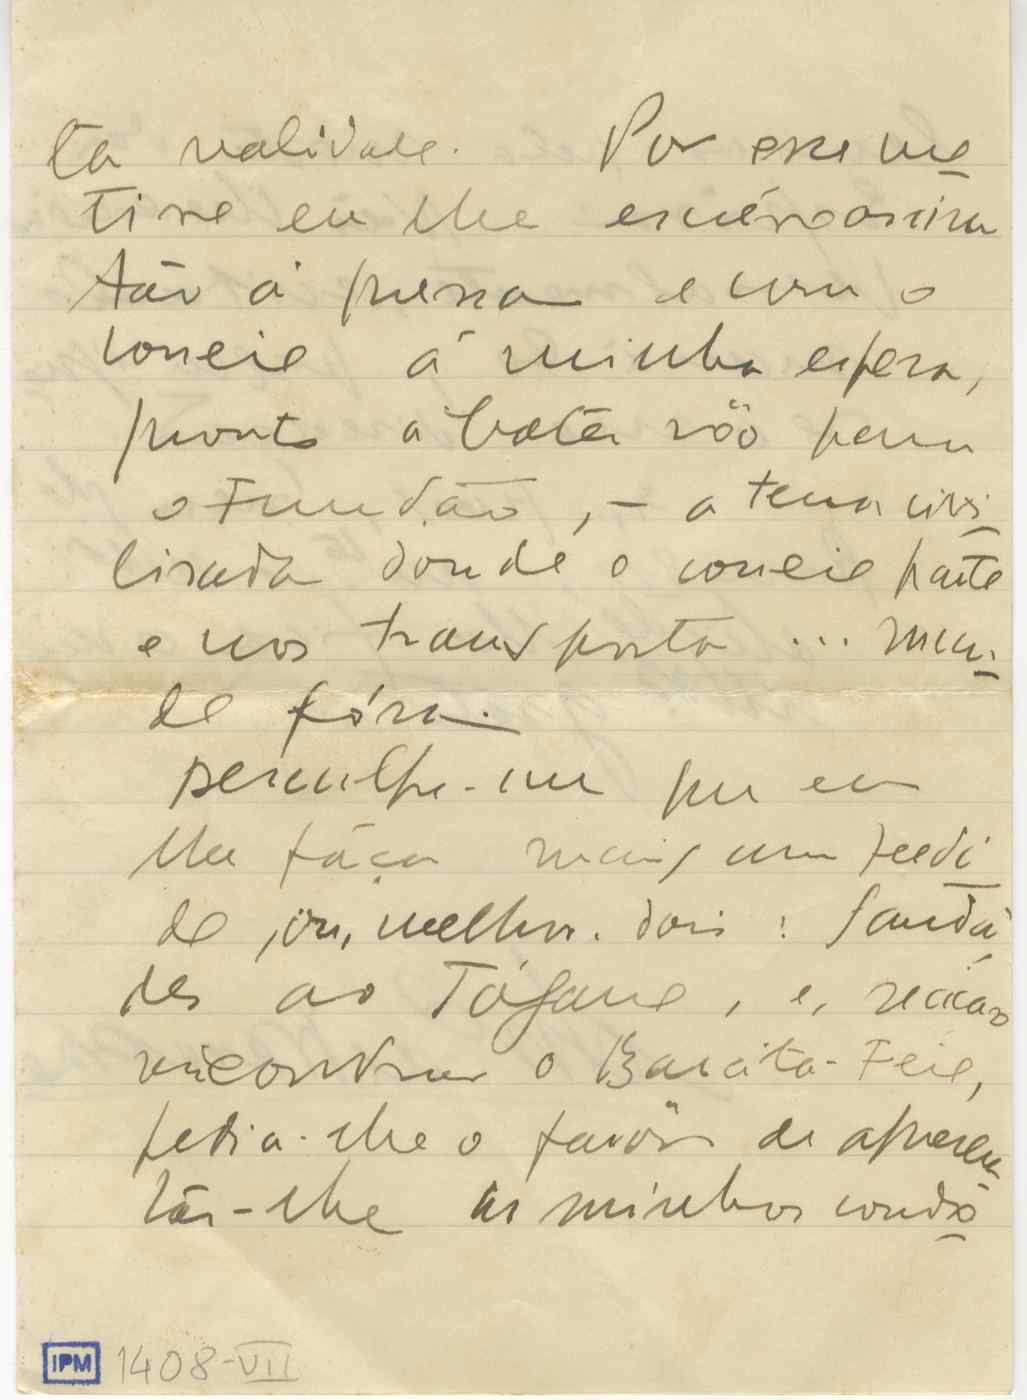 ta validade. Por esse mo
tivo eu lhe escrévo assim
tão á pressa e com o
correio á minha espera,
pronto a batêr vôo para
o Fundão, – a terra civi
lisada donde o correio parte
e nos transporta ... mun
do fóra.
Desculpe-me que eu
lhe fáça mais um pedi
do, ou, melhor. dois: Saudá
des ao Tágarro, e, se caso
encontrar o Barata-Feio,
pedia-lhe o favôr de apresen
tár-lhe as minhas condo
IPM 1408-VII